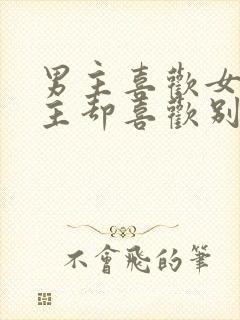 男主喜歡女
主却喜歡别
不會飛的筆